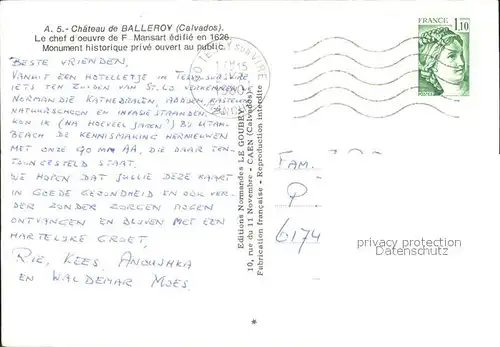 A. 5. - Château de BALLEROY (Calvados).
Le chef d'oeuvre de F. Mansart édifié en 1626.
Monument historique privé ouvert au public.
BESTE VRIENDEN,
VANUIT EEN HOTELLETJE IN TESSY SUR VIRE,
IETS TEN ZUIDEN VAN ST. LO VERKENNEN
NORMANDIË KATHEDRALEN, ABDIJEN, KASTELEN
NATUURSCHOON EN INVASIESTRANDEN.
KON IK (NA HOEVEEL JAREN?) BIJ UTAH-
BEACH DE KENNISMAKING HERNIEUWEN
MET ONZE 90 MM AA, DIE DAAR TEN-
TOONGESTELD STAAT.
WE HOPEN DAT JULLIE DEZE KAART
IN GOEDE GEZONDHEID EN OOK VER-
DER ZONDER ZORGEN MOGEN
ONTVANGEN EN BLIJVEN MET EEN
HARTELIJKE GROET,
RIE, KEES, ANOUSHKA
EN WALDEMAR MOES.
Editions Normandes LE GOUBEY
10, rue du 11 Novembre - CAEN (Calvados)
Fabrication française - Reproduction interdite
TESSY SUR VIRE
15
1980
FRANCE
1,10
FAM.
P
6174
privacy protection
Datenschutz
*